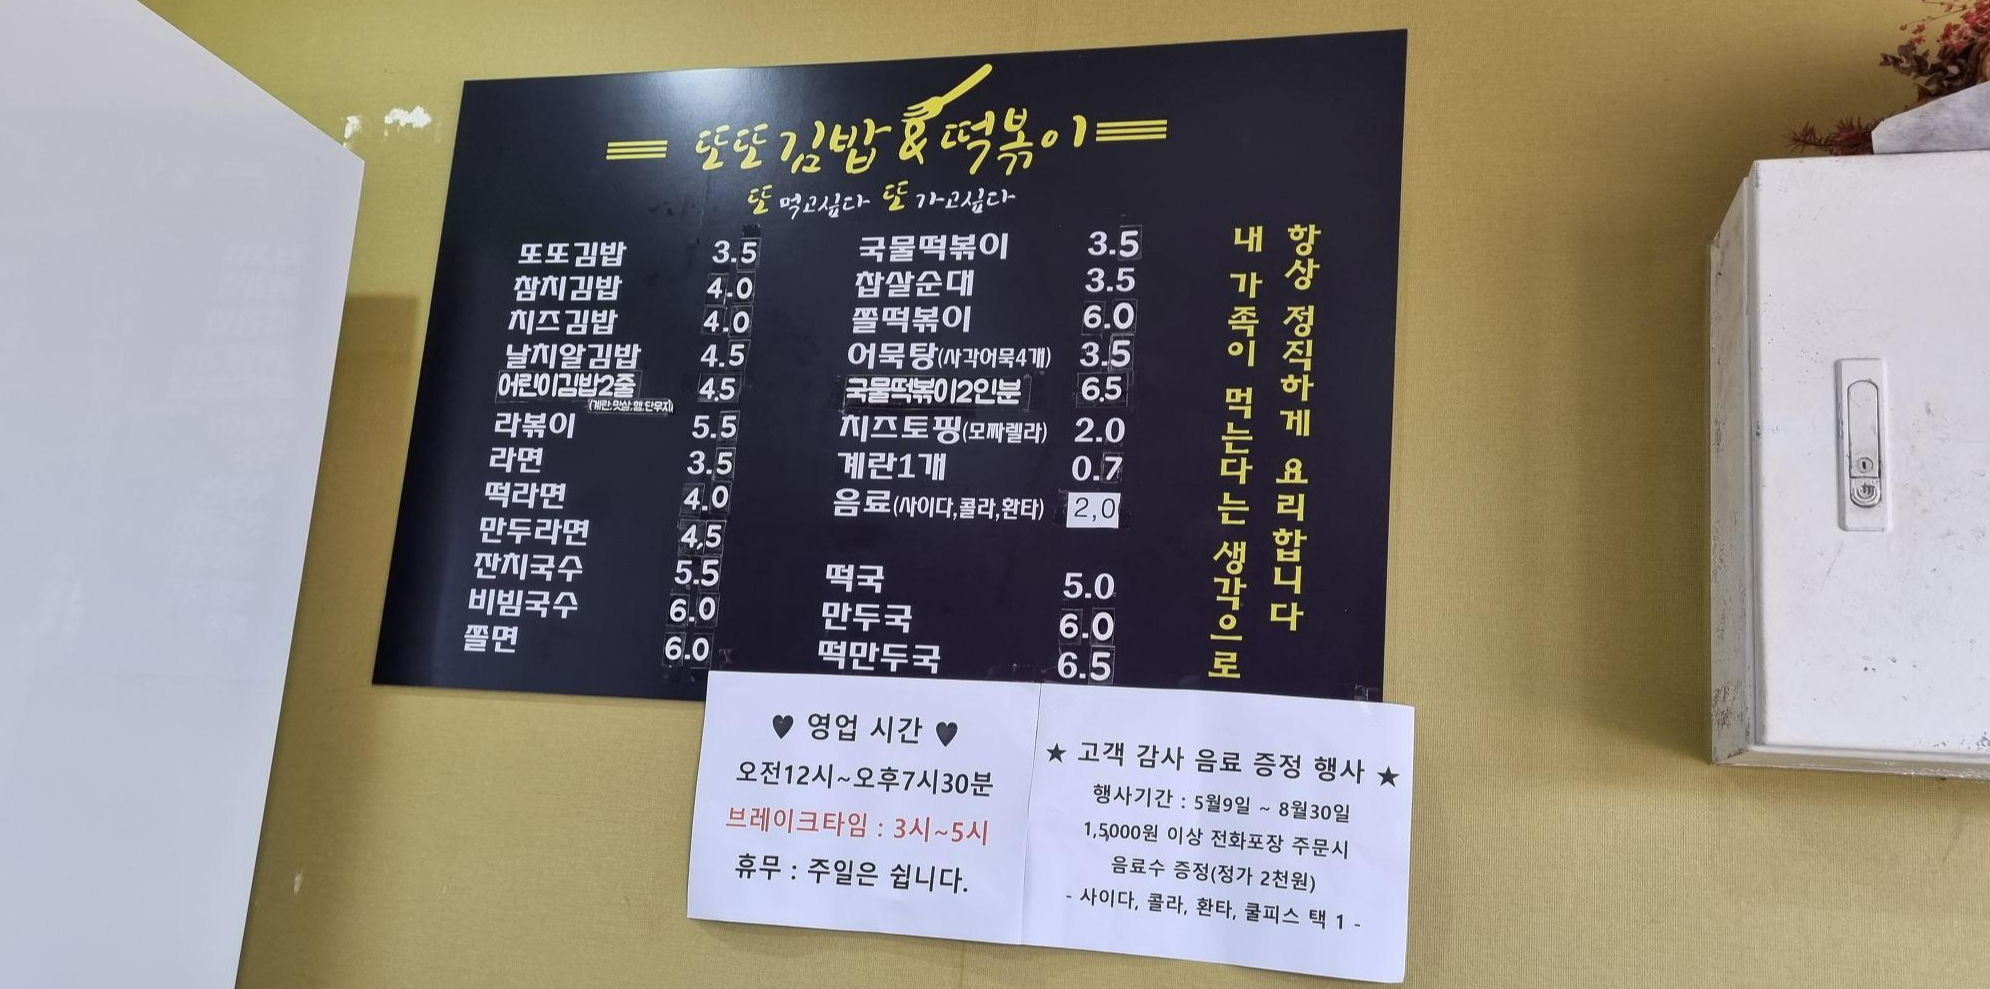 또또김밥&떡볶이
또 먹고싶다 또 가고싶다
또또김밥 3.5
참치김밥 4.0
치즈김밥 4.0
날치알김밥 4.5
어린이김밥2줄 4.5
(계란,맛살,햄,단무지)
라볶이 5.5
라면 3.5
떡라면 4.0
만두라면 4,5
잔치국수 5.5
비빔국수 6.0
쫄면 6.0
국물떡볶이 3.5
찹살순대 3.5
쫄떡볶이 6.0
어묵탕(사각어묵4개) 3.5
국물떡볶이2인분 6.5
치즈토핑(모짜렐라) 2.0
계란1개 0.7
음료(사이다,콜라,환타) 2,0
떡국 5.0
만두국 6.0
떡만두국 6.5
항상 정직하게 요리합니다
내 가족이 먹는다는 생각으로
♥ 영업 시간 ♥
오전12시~오후7시30분
브레이크타임 : 3시~5시
휴무 : 주일은 쉽니다.
★ 고객 감사 음료 증정 행사 ★
행사기간 : 5월9일 ~ 8월30일
1,5000원 이상 전화포장 주문시
음료수 증정(정가 2천원)
- 사이다, 콜라, 환타, 쿨피스 택 1 -